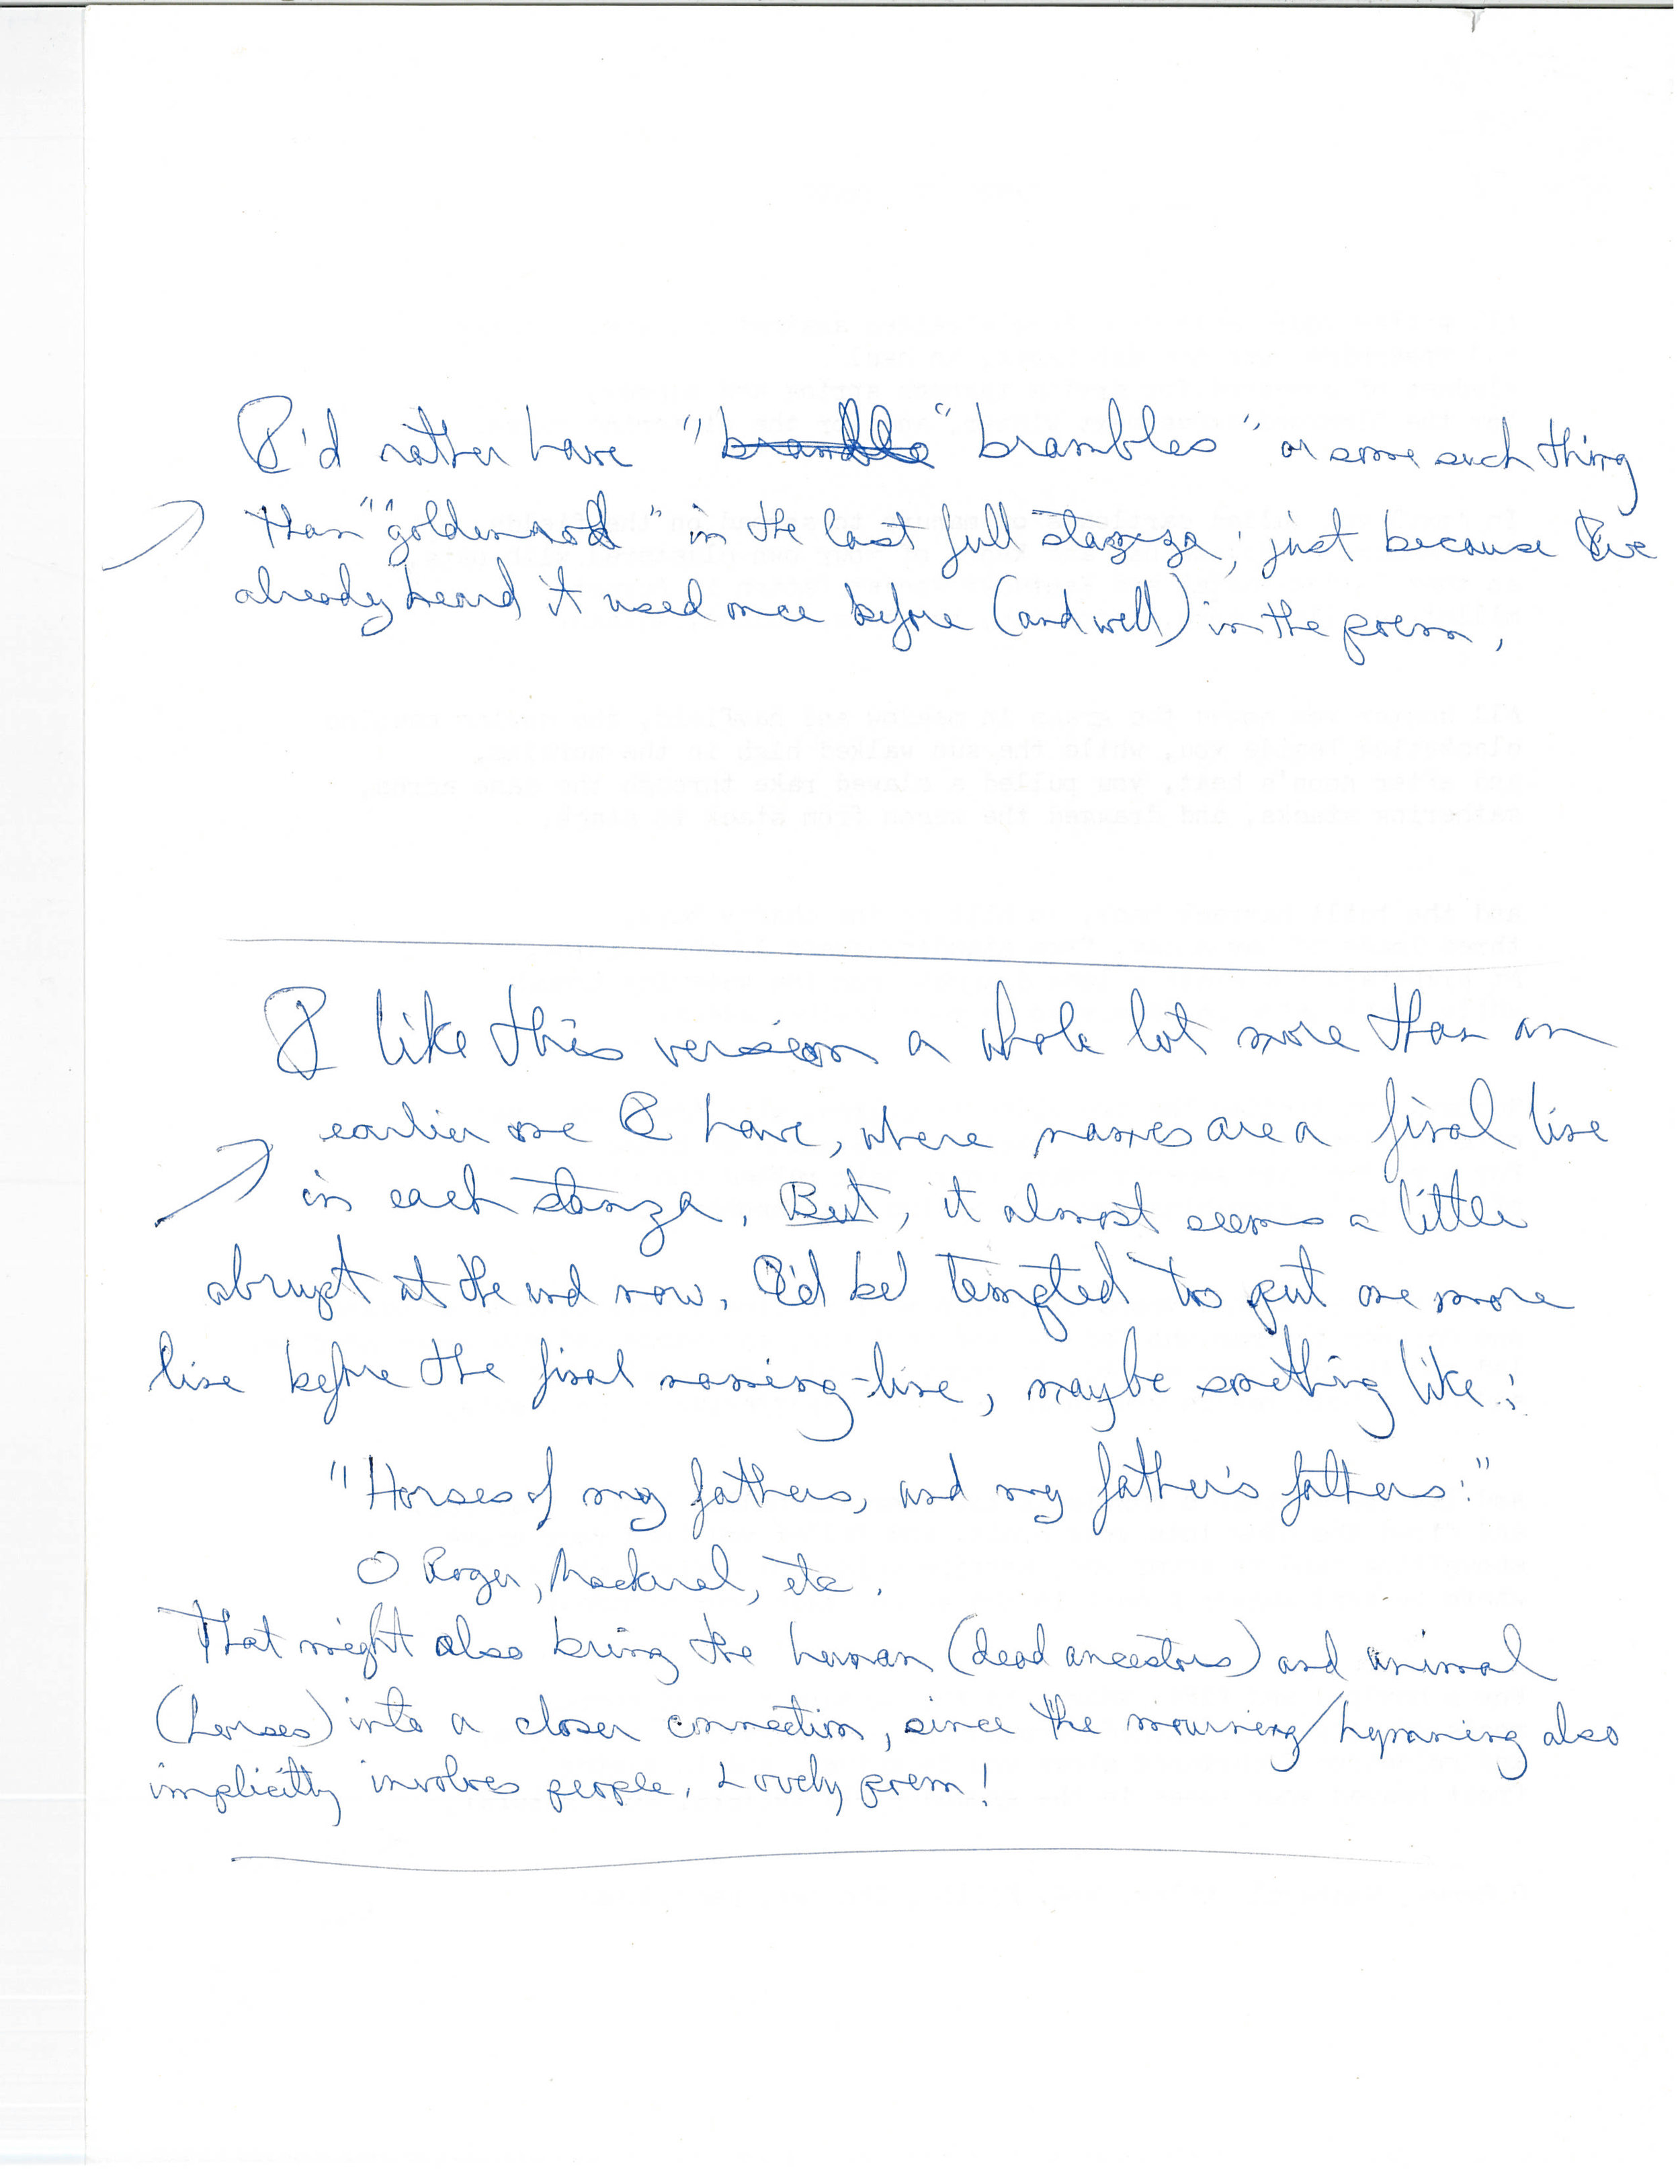 I'd rather have "bramble "brambles" or some such thing
than ""goldenrod" in the last full stanza, just because I've
already heard it used once before (and well) in the poem,
I like this version a whole lot more than an
earlier one I have, where names are a final line
in each stanza. But, it almost seems a little
abrupt at the end now. I'd be tempted to put one more
line before the final naming-line, maybe something like:
"Horses of my fathers, and my father's fathers:"
O Roger, Mackerel, etc.
That might also bring the human (dead ancestors) and animal
(horses) into a closer connection, since the mourning/hymning also
implicitly involves people. Lovely poem!